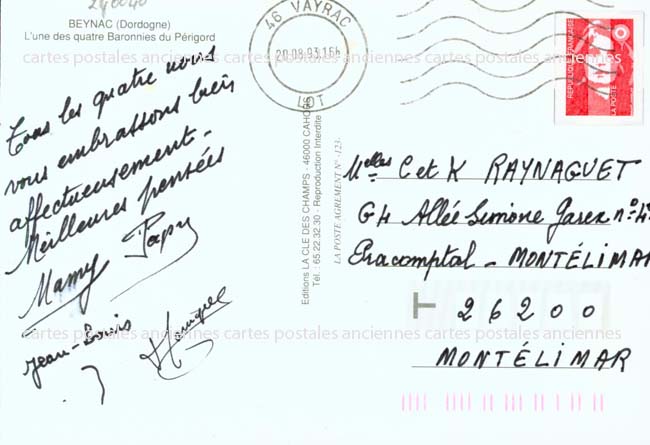 240040
BEYNAC (Dordogne)
L'une des quatre Baronnies du Périgord
cartes postales anciennes cartes postales anciennes cartes postales anciennes
Tous les quatre nous
vous embrassons bien
affectueusement.
Meilleures pensées
Mamy Papy
Jean-Louis
Monique
46 VAYRAC
20.08.93.16h
LOT
REPUBLIQUE FRANÇAISE
LA POSTE
Editions LA CLE DES CHAMPS - 46000 CAHORS
Tél. : 65.22.32.30 - Reproduction Interdite
LA POSTE AGREMENT N° -123-
Melles C et K RAYNAGUET
G4 Allée Simone Garex n°
Pracomptal - MONTÉLIMAR
26200
MONTÉLIMAR
cartes postales anciennes cartes postales anciennes cartes postales anciennes